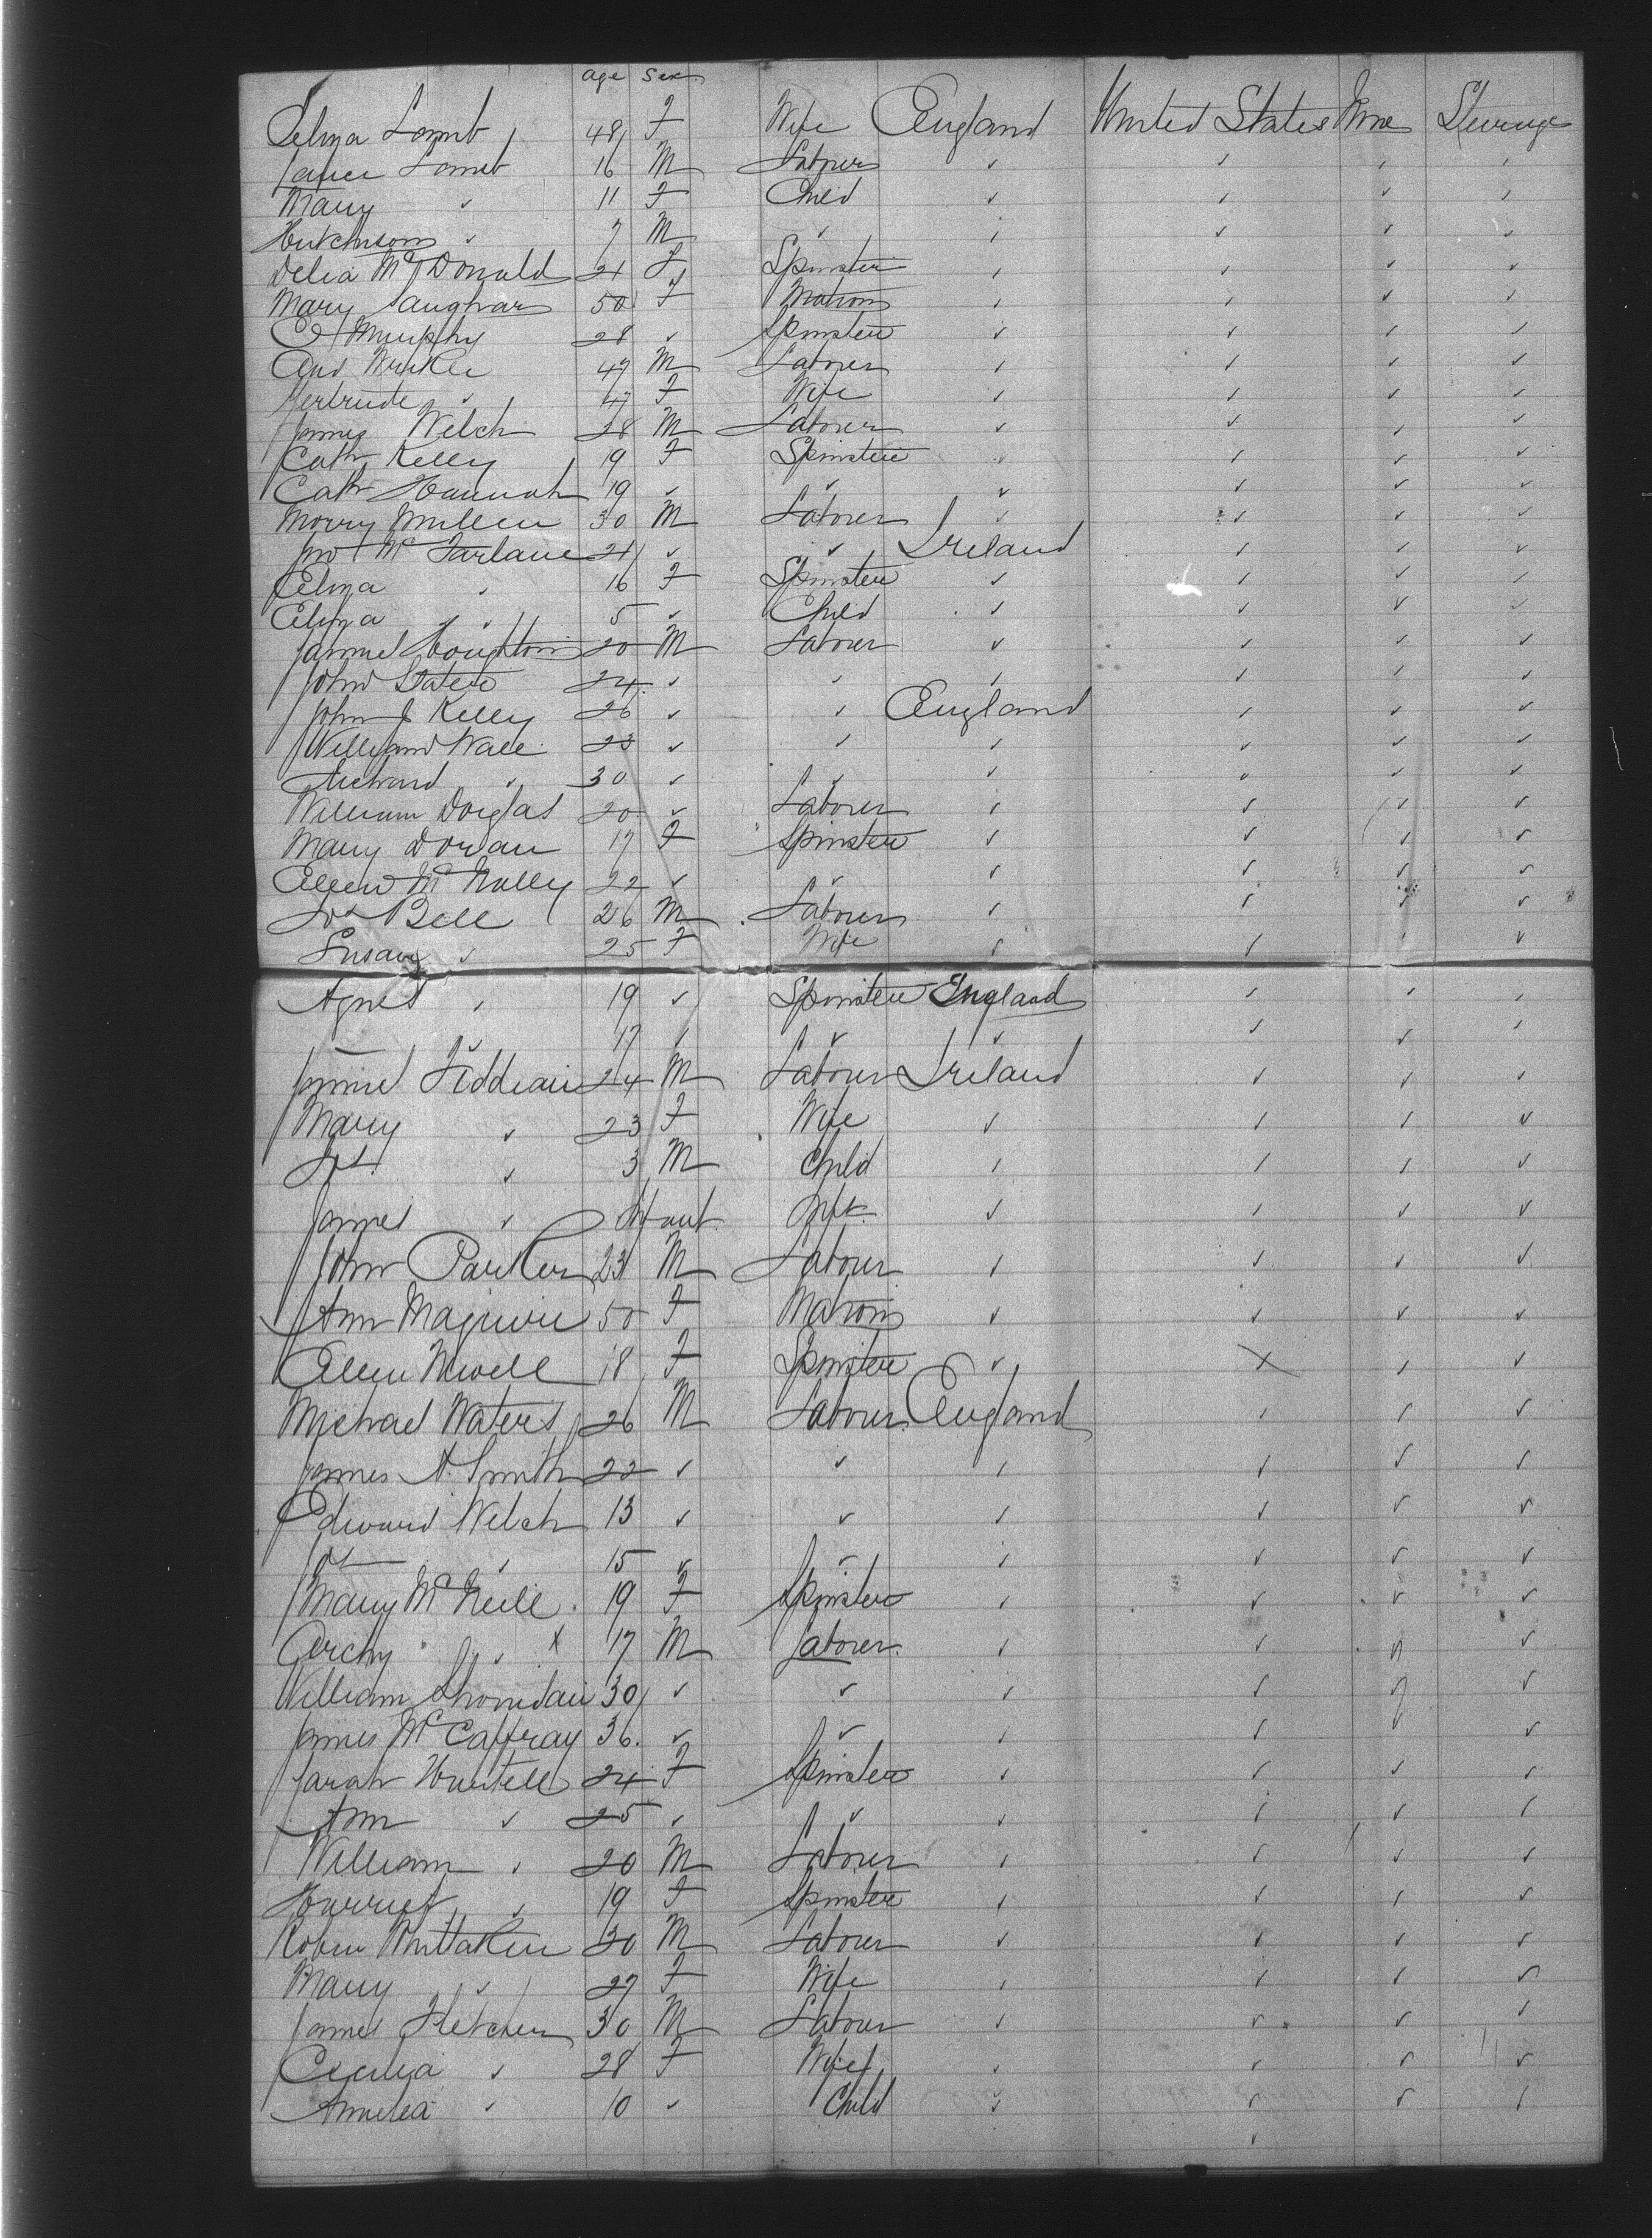 age sex
Eliza Lamb 48 F Wife England United States None Steerage
James Lamb 16 M Laborer ✓ ✓ ✓ ✓
Mary ✓ 11 F Child ✓ ✓ ✓ ✓
Hutchison ✓ 7 M ✓ ✓ ✓ ✓ ✓
Delia McDonald 21 F Spinster ✓ ✓ ✓ ✓
Mary 50 F Matron ✓ ✓ ✓ ✓
Murphy 28 ✓ Spinster ✓ ✓ ✓ ✓
And 47 M Laborer ✓ ✓ ✓ ✓
Gertrude ✓ 47 F Wife ✓ ✓ ✓ ✓
James Welch 28 M Laborer ✓ ✓ ✓ ✓
Cath Kelly 19 F Spinster ✓ ✓ ✓ ✓
Cath Hannah 19 ✓ ✓ ✓ ✓ ✓ ✓
30 M Laborer ✓ ✓ ✓ ✓
Jno McFarlane 21 ✓ ✓ Ireland ✓ ✓ ✓
Eliza ✓ 16 F Spinster ✓ ✓ ✓ ✓
Eliza ✓ ✓ 5 ✓ Child ✓ ✓ ✓ ✓
Houghton 20 M Laborer ✓ ✓ ✓ ✓
John 24 ✓ ✓ ✓ ✓ ✓ ✓
John J Kelly 26 ✓ ✓ England ✓ ✓ ✓
William Wall 23 ✓ ✓ ✓ ✓ ✓ ✓
Richard ✓ 30 ✓ ✓ ✓ ✓ ✓ ✓
William Douglas 20 ✓ Laborer ✓ ✓ ✓ ✓
Mary Doran 17 F Spinster ✓ ✓ ✓ ✓
Ellen McNally 22 ✓ ✓ ✓ ✓ ✓ ✓
Jos Bell 26 M Laborer ✓ ✓ ✓ ✓
Susan ✓ 25 F Wife ✓ ✓ ✓ ✓
Agnes ✓ 19 ✓ Spinster England ✓ ✓ ✓
— ✓ 17 ✓ ✓ ✓ ✓ ✓ ✓
24 M Laborer Ireland ✓ ✓ ✓
Mary ✓ 23 F Wife ✓ ✓ ✓ ✓
✓ 3 M Child ✓ ✓ ✓ ✓
James ✓ Infant Inft. ✓ ✓ ✓ ✓
John Parker 23 M Laborer ✓ ✓ ✓ ✓
Ann Maguire 50 F Matron ✓ ✓ ✓ ✓
Ellen Newell 18 F Spinster ✓ X ✓ ✓
Michael Waters 26 M Laborer England ✓ ✓ ✓
James A. Smith 22 ✓ ✓ ✓ ✓ ✓ ✓
Edward Welch 13 ✓ ✓ ✓ ✓ ✓ ✓
✓ 15 ✓ ✓ ✓ ✓ ✓ ✓
Mary McNeill 19 F Spinster ✓ ✓ ✓ ✓
Archy ✓ X 17 M Laborer ✓ ✓ ✓ ✓
William 30 ✓ ✓ ✓ ✓ ✓ ✓
James McCaffray 36 ✓ ✓ ✓ ✓ ✓ ✓
Sarah 24 F Spinster ✓ ✓ ✓ ✓
Ann ✓ 25 ✓ ✓ ✓ ✓ ✓ ✓
William ✓ 20 M Laborer ✓ ✓ ✓ ✓
Harriet ✓ 19 F Spinster ✓ ✓ ✓ ✓
Whittaker 30 M Laborer ✓ ✓ ✓ ✓
Mary ✓ 27 F Wife ✓ ✓ ✓ ✓
James Fletcher 30 M Laborer ✓ ✓ ✓ ✓
Cecilia ✓ 28 F Wife ✓ ✓ ✓ ✓
Amelia ✓ 10 ✓ Child ✓ ✓ ✓ ✓
✓